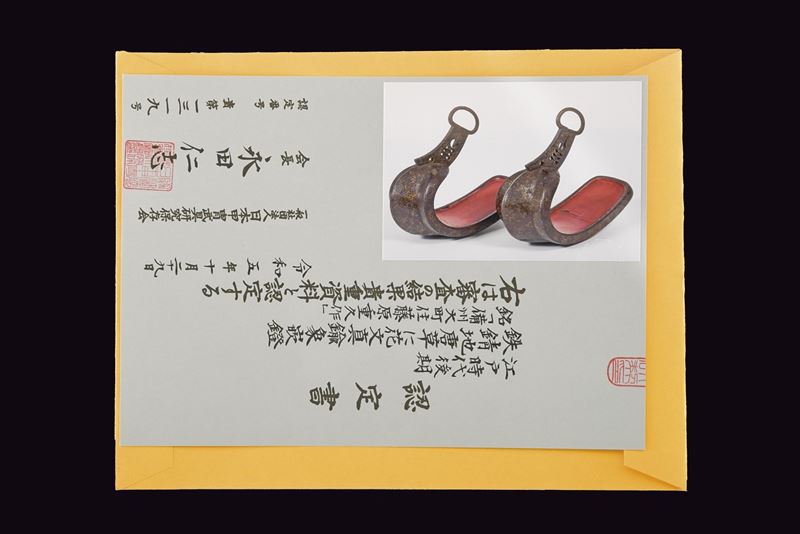 認定書
江戸時代後期
鉄錆地唐草に花文真鍮象嵌鐙
銘「備州大町住藤原重久作」
右は審査の結果貴重資料と認定する
令和五年十月二十九日
一般社団法人日本甲冑武具研究保存会
会長 永田仁志
認定番号 貴第一三一九号